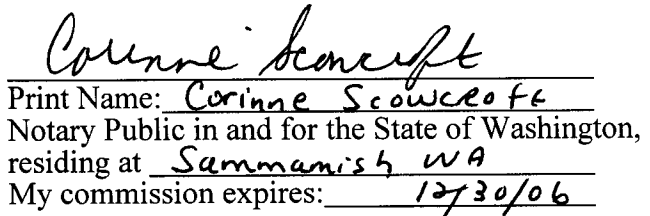 Corinne Scowcroft
Print Name: Corinne Scowcroft
Notary Public in and for the State of Washington,
residing at Sammamish WA
My commission expires: 12/30/06